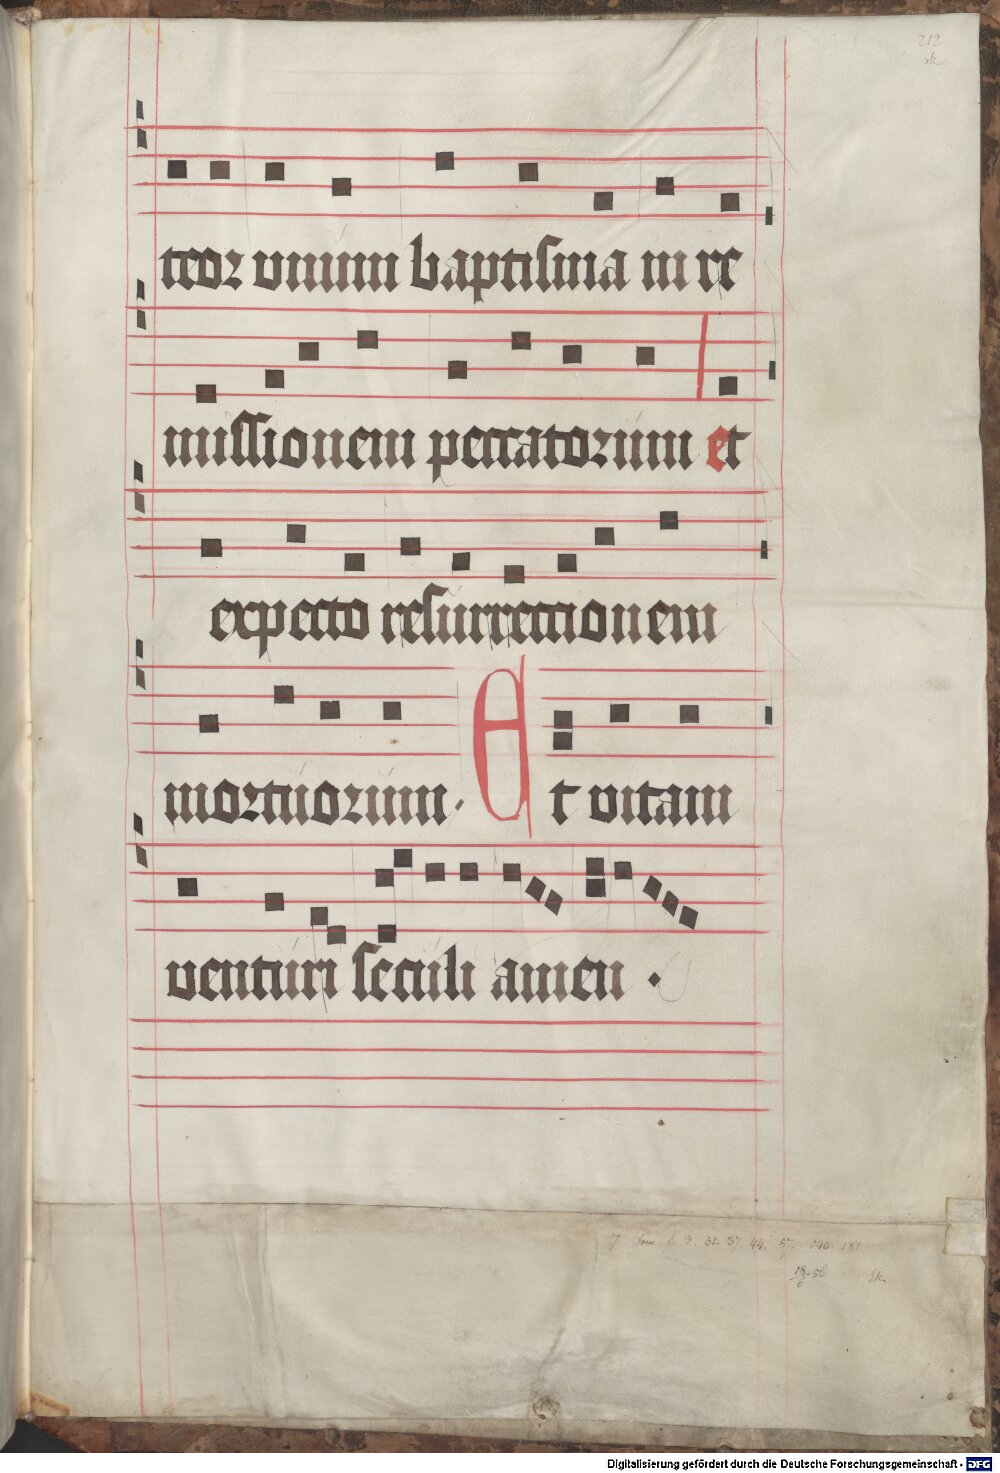 212
sk
teor unum baptisma in re
missionem peccatorum et
expecto resurrectionem
mortuorum. Et vitam
venturi seculi amen.
3. 31. 37. 44. 57. 140. 181
18/6 56 sk
Digitalisierung gefördert durch die Deutsche Forschungsgemeinschaft - DFG